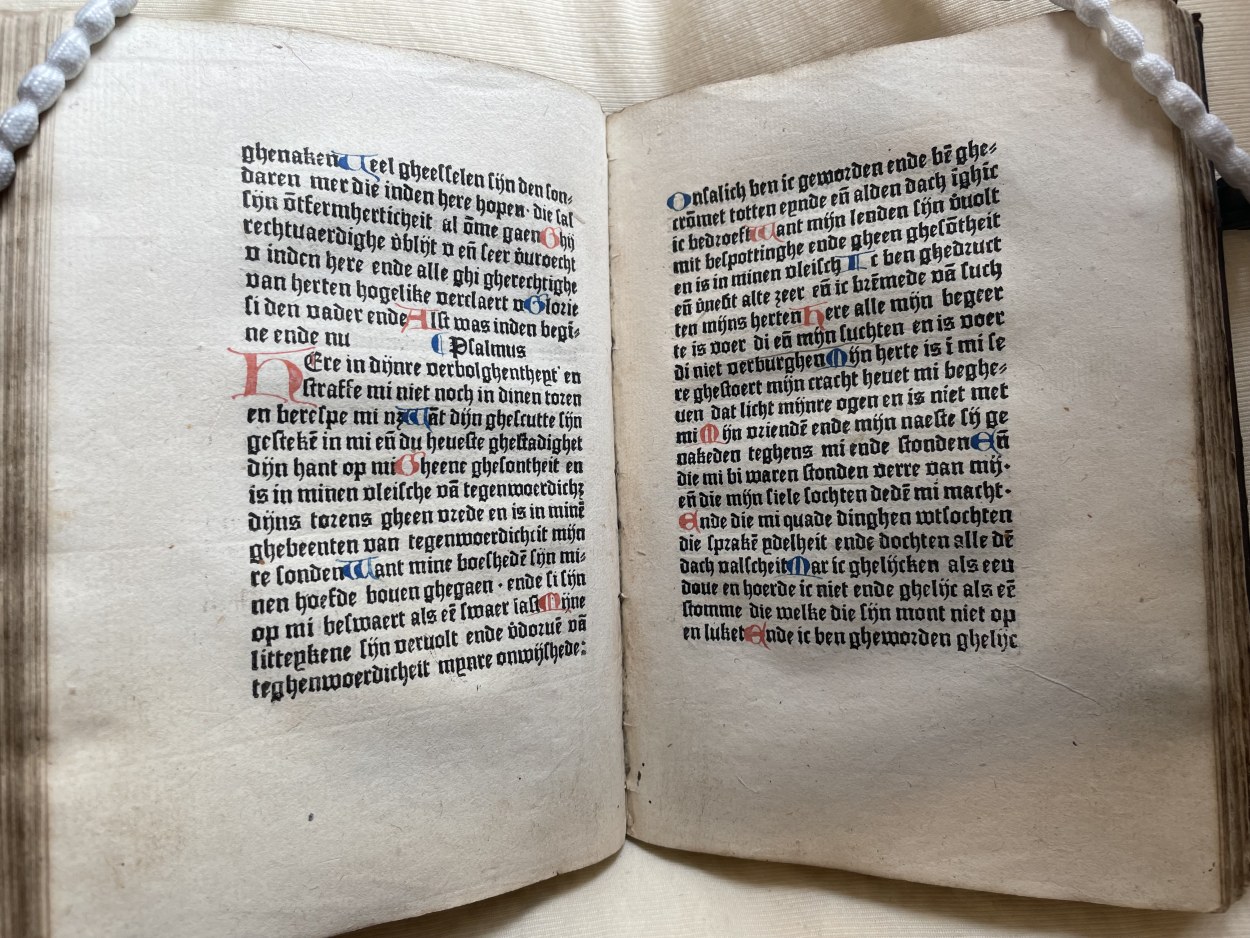 ghenaken Ueel gheesselen sijn den son-
daren mer die inden here hopen· die sal
sijn ōtfermherticheit al ōme gaen Ghij
rechtuaerdighe v̄blijt v eñ seer vuroecht
v inden here ende alle ghi gherechtighe
van herten hogelike verclaert v Glorie
si den vader ende Alst was inden begī-
ne ende nu Psalmus
HEre in dijnre verbolghentheyt en
straffe mi niet noch in dinen toren
en berespe mi nz Wāt dijn ghescutte sijn
gestekē in mi eñ du heueste ghestadighet
dijn hant op mi Gheene ghesontheit en
is in minen vleische vā tegenwoerdichz
dijns torens gheen vrede en is in minē
ghebeenten van tegenwoerdicheit mijn
re sonden Want mine boeshedē sijn mi-
nen hoefde bouen ghegaen · ende si sijn
op mi beswaert als eē swaer last Mijne
litteykene sijn veruolt ende v̄doruē vā
teghenwoerdicheit mynre onwijshede:
Onsalich ben ic geworden ende bē ghe-
crōmet totten eynde eñ alden dach īghīc
ic bedroeft Want mijn lenden sijn v̄uolt
mit bespottinghe ende gheen ghesōtheit
en is in minen vleisch Ic ben ghedruct
eñ v̄neßt alte zeer eñ ic brēmede vā such
ten mijns herten here alle mijn begeer
te is voer di eñ mijn suchten en is voer
di niet verburghen Mijn herte is ī mi se
re ghestoert mijn cracht heuet mi beghe-
uen dat licht mijnre ogen en is niet met
mi Mijn vriendē ende mijn naeste sij ge
nakeden teghens mi ende stonden Eñ
die mi bi waren stonden verre van mij·
eñ die mijn siele sochten dedē mi macht·
Ende die mi quade dinghen wtsochten
die sprakē ydelheit ende dochten alle dē
dach valscheit Mar ic ghelijcken als een
doue en hoerde ic niet ende ghelijc als eē
stomme die welke die sijn mont niet op
en luket Ende ic ben gheworden ghelijc